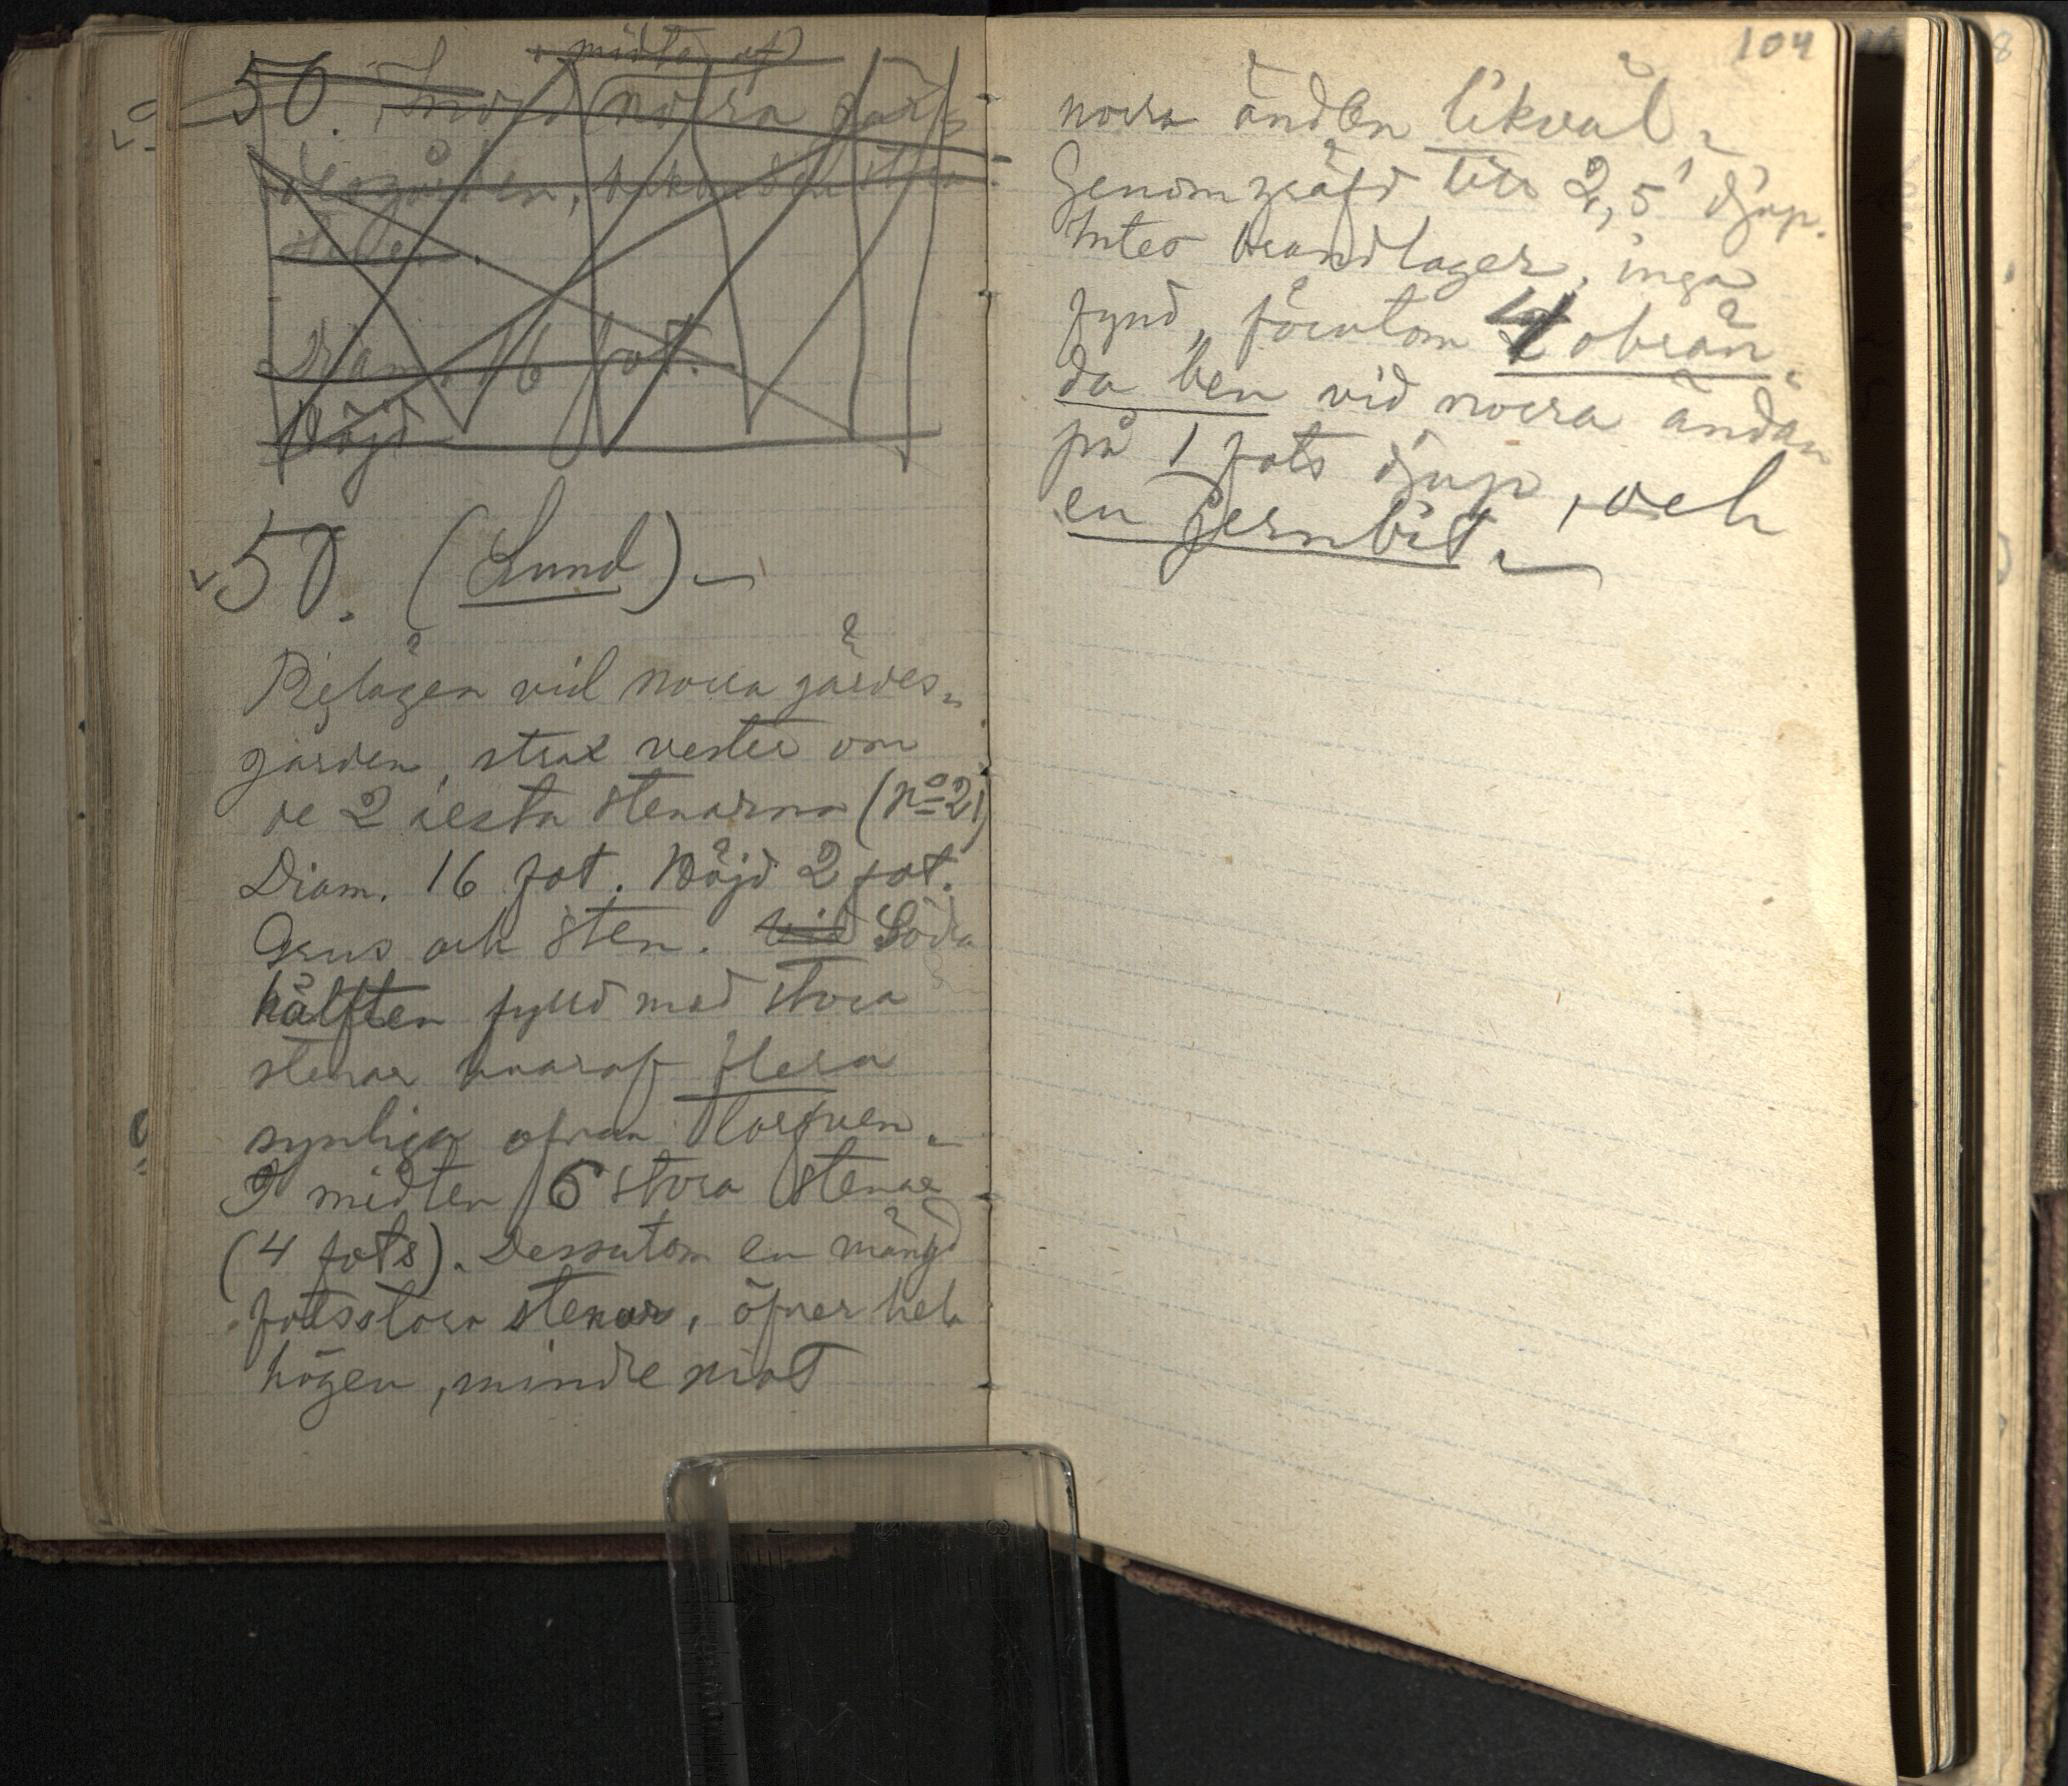 midten af
50. Invid norra gär-
desgården,
Diam. 16 fot.
Höjd
50. (Lund)
Belägen vid norra gärdes-
gården, strax vester om
de 2 resta stenarna (No 2)
Diam. 16 fot. Höjd 2 fot.
Grus och sten. vid Södra
hälften fylld med stora
stenar hvaraf flera
synliga ofvan torfven.
I midten 6 stora stenar
(4 fots). Dessutom en mängd
fotsstora stenar, öfver hela
högen, mindre mot
104
norra ändan likväl.
Genomgräfd till 2,5' djup.
Intet brandlager, inga
fynd, förutom 4 obrän-
da ben vid norra ändan
på 1 fots djup, och
en jernbit.